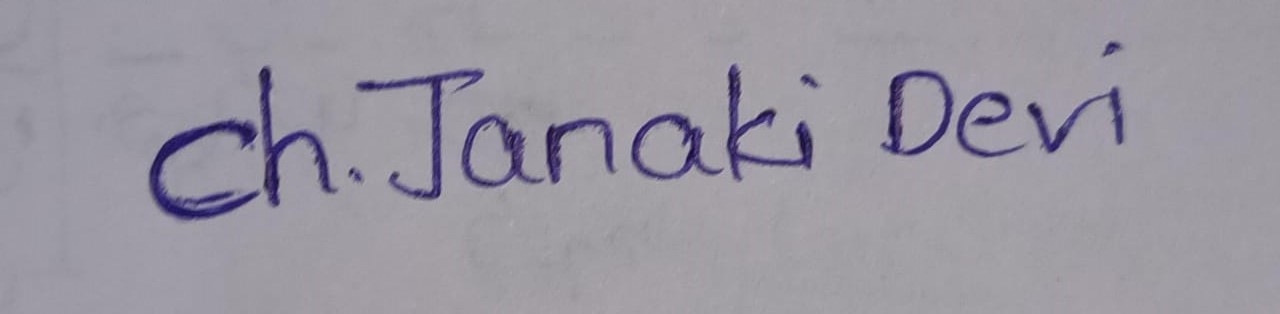 Ch. Janaki Devi